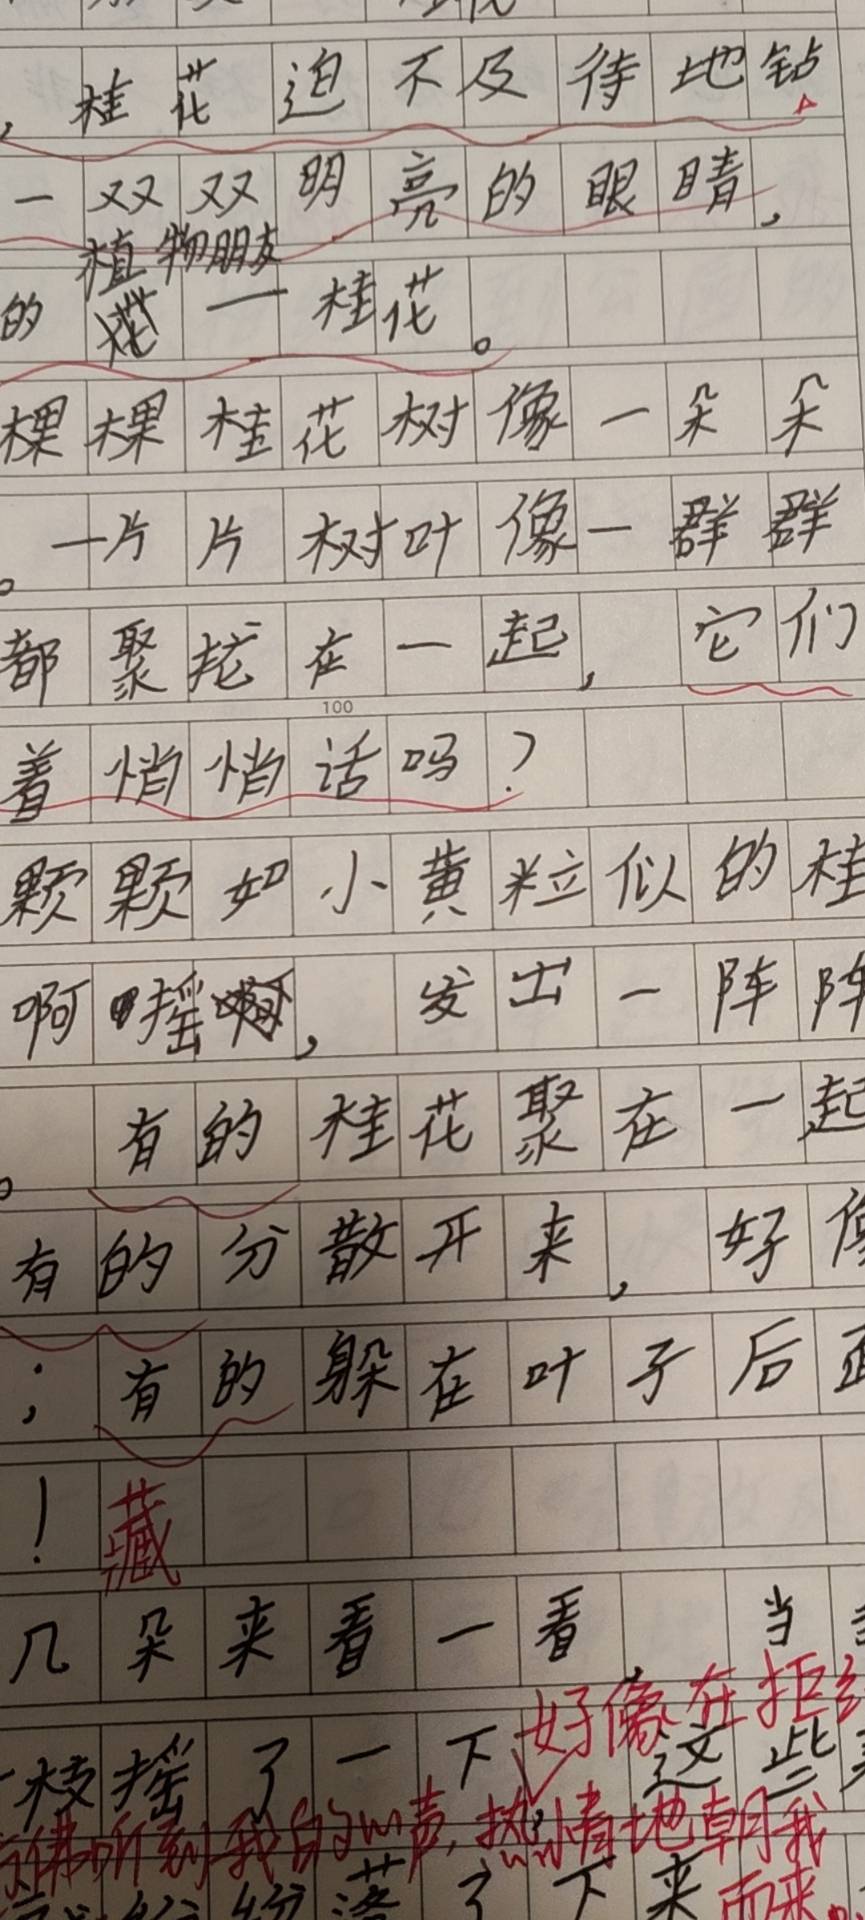 ，桂花迫不及待地钻
一双双明亮的眼睛，
植物朋友
的 一桂花。
棵棵桂花树像一朵朵
。一片片树叶像一群群
都聚拢在一起，它们
100
着悄悄话吗？
颗颗如小黄粒似的桂
啊摇啊，发出一阵阵
。有的桂花聚在一起
有的分散开来，好像
；有的躲在叶子后面
！藏
几朵来看一看 当
好像在拒
枝摇了一下 这些
佛听到我的心声，热情地朝我
纷落了下来而来。